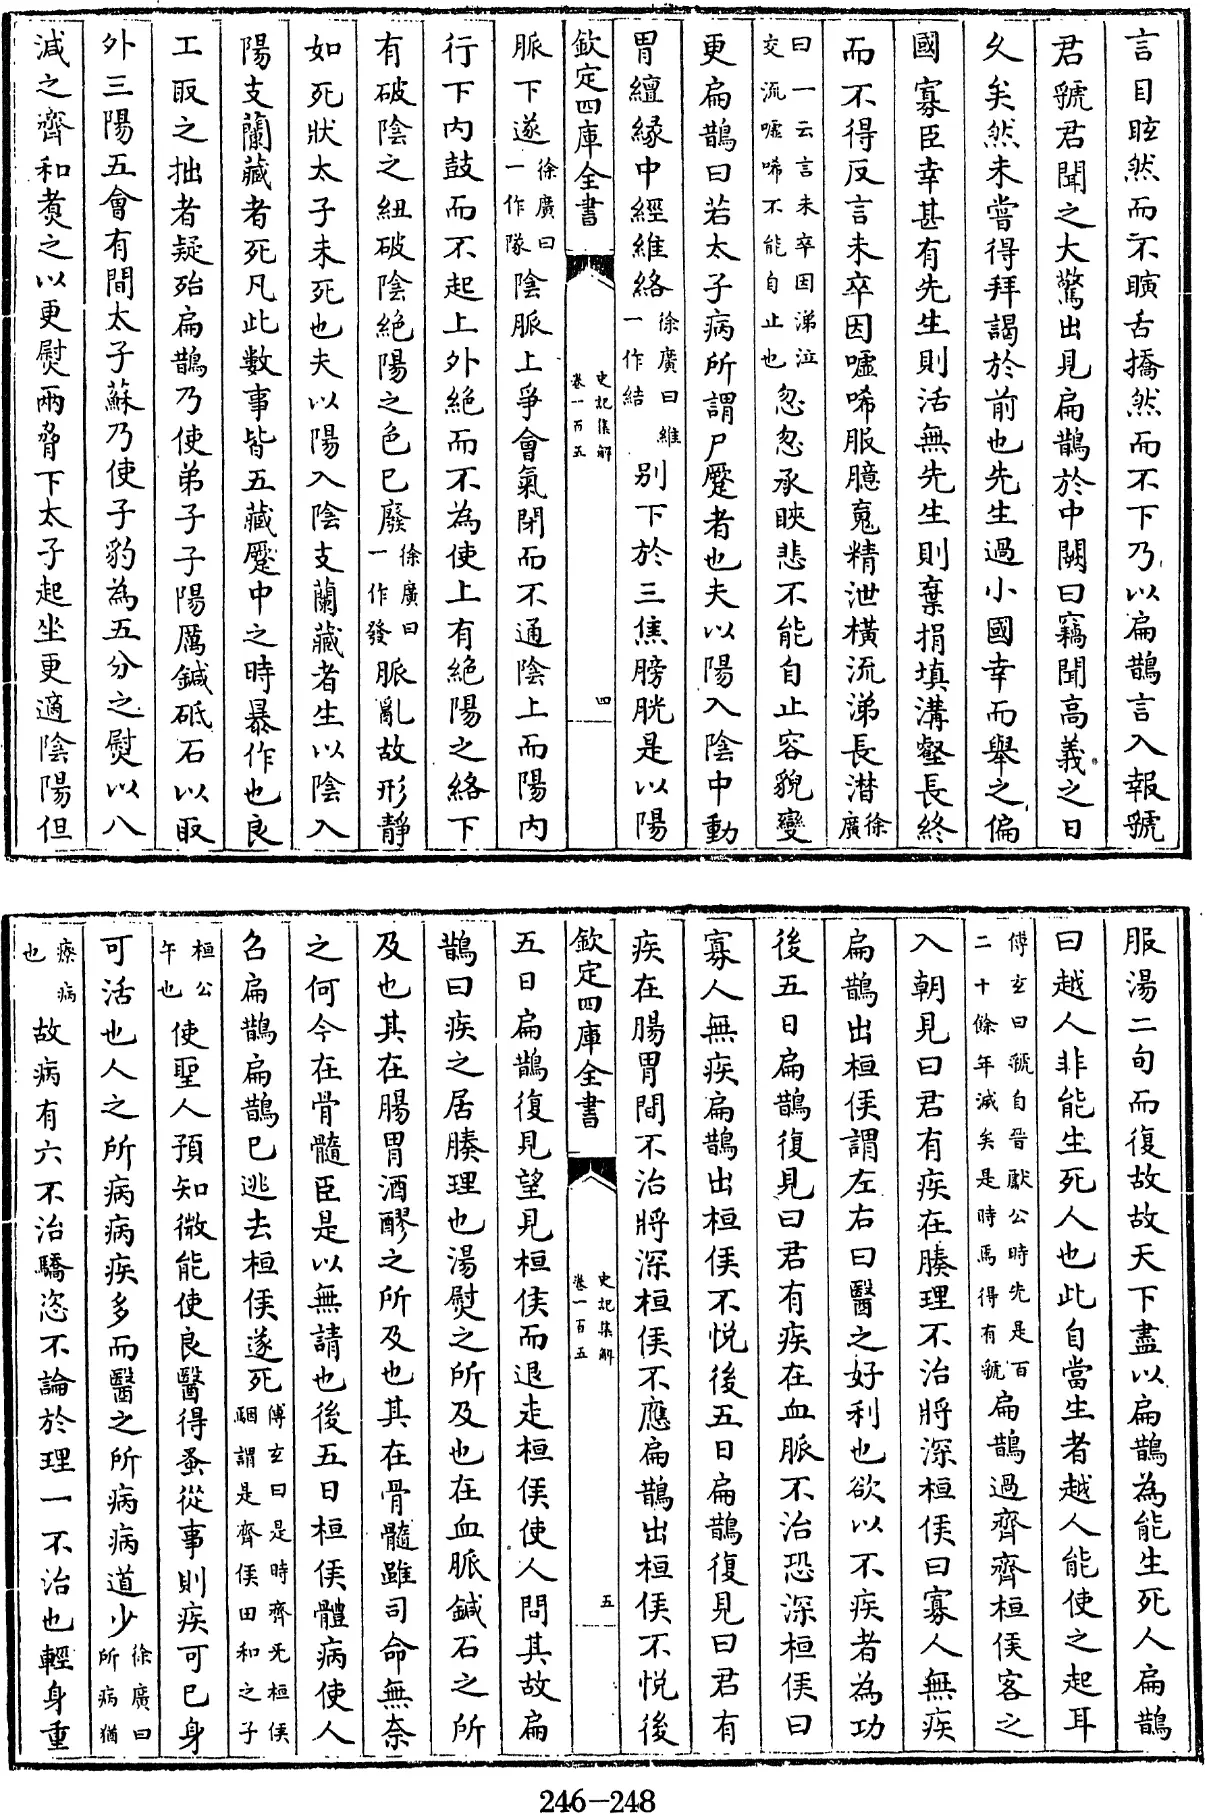 言目眩然而不瞚舌撟然而不下乃以扁鵲言入報虢
君虢君聞之大驚出見扁鵲於中闕曰竊聞高義之日
久矣然未嘗得拜謁於前也先生過小國幸而舉之偏
國寡臣幸甚有先生則活無先生則棄捐填溝壑長終
而不得反言未卒因噓唏服臆䰟精泄橫流涕長潸徐廣
曰一云言未卒因涕泣
交流噓唏不能自止也忽忽承䀹悲不能自止容貌變
更扁鵲曰若太子病所謂尸蹷者也夫以陽入陰中動
胃繵縁中經維絡徐廣曰維
一作結别下於三焦膀胱是以陽
欽定四庫全書
史記集解
卷一百五
四
脈下遂徐廣曰
一作隊陰脈上爭會氣閉而不通陰上而陽内
行下内鼓而不起上外絶而不為使上有絶陽之絡下
有破陰之紐破陰絶陽之色已廢徐廣曰
一作發脈亂故形靜
如死狀太子未死也夫以陽入陰支蘭藏者生以陰入
陽支蘭藏者死凡此數事皆五藏蹷中之時暴作也良
工取之拙者疑殆扁鵲乃使弟子子陽厲鍼砥石以取
外三陽五會有間太子蘇乃使子豹為五分之熨以八
減之齊和煑之以更熨兩脅下太子起坐更適陰陽但
服湯二旬而復故故天下盡以扁鵲為能生死人扁鵲
曰越人非能生死人也此自當生者越人能使之起耳
傅玄曰虢自晉獻公時先是百
二十餘年滅矣是時焉得有虢扁鵲過齊齊桓侯客之
入朝見曰君有疾在腠理不治將深桓侯曰寡人無疾
扁鵲出桓侯謂左右曰醫之好利也欲以不疾者為功
後五日扁鵲復見曰君有疾在血脈不治恐深桓侯曰
寡人無疾扁鵲出桓侯不悅後五日扁鵲復見曰君有
疾在腸胃間不治將深桓侯不應扁鵲出桓侯不悅後
欽定四庫全書
史記集解
卷一百五
五
五日扁鵲復見望見桓侯而退走桓侯使人問其故扁
鵲曰疾之居腠理也湯熨之所及也在血脈鍼石之所
及也其在腸胃酒醪之所及也其在骨髓雖司命無奈
之何今在骨髓臣是以無請也後五日桓侯體病使人
召扁鵲扁鵲已逃去桓侯遂死傅玄曰是時齊无桓侯
駰謂是齊侯田和之子
桓公
午也使聖人預知微能使良醫得蚤從事則疾可已身
可活也人之所病病疾多而醫之所病病道少徐廣曰
所病猶
療病
也故病有六不治驕恣不論於理一不治也輕身重
246-248